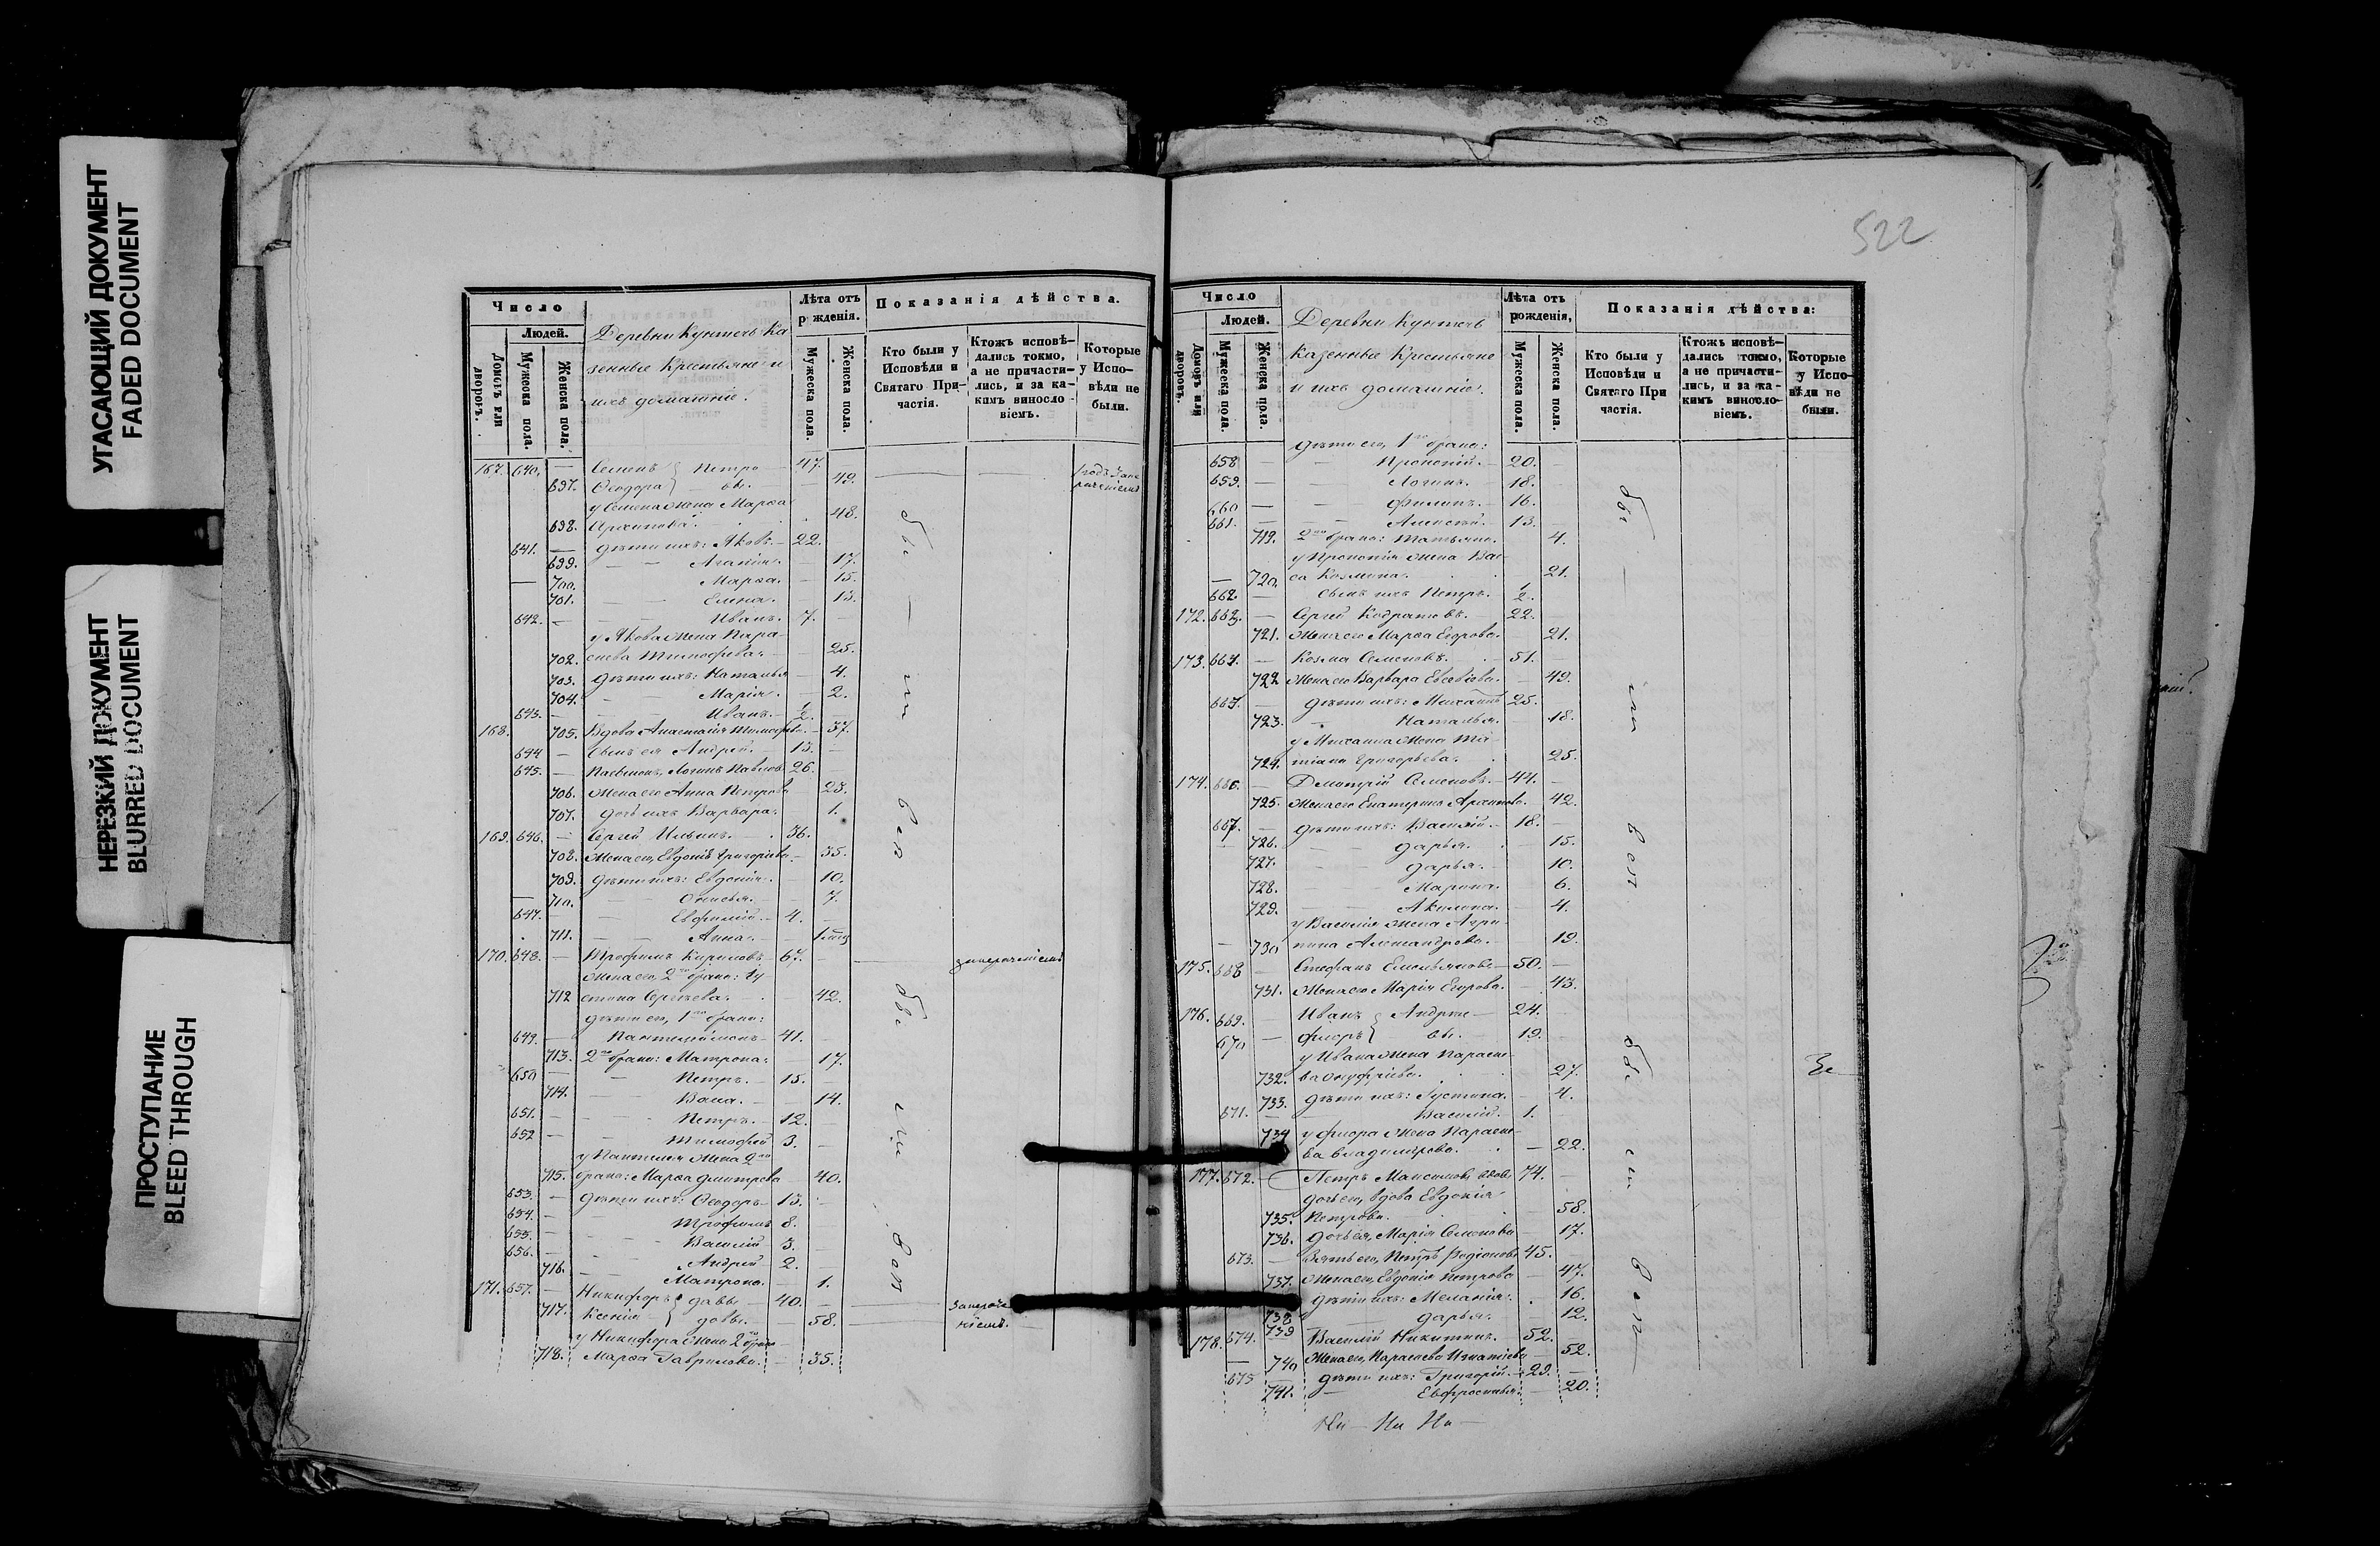 УГАСАЮЩИЙ ДОКУМЕНТ
FADED DOCUMENT
НЕРЕЗКИЙ ДОКУМЕНТ
BLURRED DOCUMENT
ПРОСТУПАНИЕ
BLEED THROUGH
Число
Людей.
Домовъ или дворовъ.
Мужеска пола.
Женска пола.
Деревни Кунтечь Ка
зенные Крестьяне и
ихъ домашніе.
Лѣта отъ рожденія.
Мужеска пола.
Женска пола.
Показанія дѣйства.
Кто были у Исповѣди и Святаго Причастія.
Ктожъ исповѣдались токмо, а не причастились, и за какимъ винословіемъ.
Которые у Исповѣди не были.
167. 640. — Семенъ } Петро 47.
697. Ѳеодора } вы. 49.
у Семена жена Марѳа
698. Архипова. 48.
641. — дѣти ихъ: Яковъ. 22.
699. Агапія. 17.
700. Марѳа. 15.
701. Елена. 13.
642. — Иванъ. 7.
у Якова жена Пара-
702. скева Тимофеева. 25.
703. дѣти ихъ: Наталья 4.
704. Марія. 2.
643. — Иванъ. ½.
168. 705. Вдова Анастасія Тимофѣева. 37.
644 — Сынъ ея Андрей. 13.
645. — Логинъ Павловъ 26.
706. Жена его Анна Петрова 23.
707. дочь ихъ Варвара. 1.
169. 646. — Сергей Ильинъ. 36.
708. Жена его, Евдокія Григорьева. 35.
709. дѣти ихъ: Евдокія. 10.
710. Онисья. 7.
647. Евфимій. 4.
711. Анна. 1
170. 648. — Трофимъ Кириловъ 67.
Жена его, 2го брака:
712 Сергѣева. 42.
дѣти его, 1го брака:
649. — Пантелеймонъ 41.
713. 2го брака: Матрона. 17.
650 — Петръ. 15.
714. Васа. 14.
651. Петръ. 12.
652 — Тимофей 3.
у Пантелея жена 2го
715. брака: Марѳа Дмитрева 40.
653. — дѣти ихъ: Ѳеодоръ 13.
654. — Трофимъ 8.
655. — Василій 3.
656. — Андрей 2.
716. Матрона. 1.
171. 657. — Никифоръ } Давы 40.
717. Ксенія } довы. 58.
у Никифора жена 2го брака
718. Марѳа Гаврилова. 35.
были
вси
были
вси
522
Число
Людей.
Домовъ или дворовъ.
Мужеска пола.
Женска пола.
Деревни Кунтечь
Казенные Крестьяне
и ихъ домашніе.
Лѣта отъ рожденія,
Мужеска пола.
Женска пола.
Показанія дѣйства:
Кто были у Исповѣди и Святаго При частія.
Ктожъ исповѣдались токмо, а не причастились, и за какимъ винословіемъ.
Которые у Исповѣди не были.
дѣти его, 1го брака:
658 — Прокопій. 20.
659. — Логинъ. 18.
660 — Филипъ. 16.
661. — Алексѣй. 13.
719. 2го брака: Татьяна. 4.
у Прокопія жена Вас-
720. са Козмина. 21.
662. — Сынъ ихъ Петръ. ½.
172. 663. — Сергей Кодратовъ. 22.
721. Жена его Марѳа Егорова. 21.
173. 664. — Козма Семеновъ. 51.
722 Жена его Варвара Евсевіова. 49.
665. — дѣти ихъ: Михаилъ 25.
723. Наталья. 18.
у Михаила жена Та-
724. тіана Григорьева. 25.
174. 666. — Дмитрій Семеновъ. 44.
725. Жена его Екатерина Архипова. 42.
667. — дѣти ихъ: Василій. 18.
726. Дарья. 15.
727. Дарья. 10.
728. Марина. 6.
729. Акилина. 4.
у Василія жена Агри-
730 пина Александрова. 19.
175. 668 — Стефанъ Емельяновъ 50.
731. Жена его Марія Егорова. 43.
176. 669. — Иванъ } Андрее 24.
670 — Флоръ } вы. 19.
у Ивана жена Параске-
732. ва Онуфріева. 27.
733. дѣти ихъ: Іустина. 4.
671. — Василій. 1.
734 у Флора жена Параске-
ва Владимірова. 22.
177. 672. — Петръ Максимовъ, вдовъ 74.
дочь его, вдова Евдокія
735. Петрова. 58.
736. дочь ея, Марія Семенова 17.
673. — Зять его, Петръ Родіоновъ 45.
737. Жена его, Евдокія Петрова 47.
738 дѣти ихъ: Меланія. 16.
739 Дарья. 12.
178. 674. Василій Никитинъ. 52.
740 Жена его, Параскева Игнатіева 52.
675 дѣти ихъ: Григорій. 29.
741. Евфросинья. 20.
были
вси
были
вси